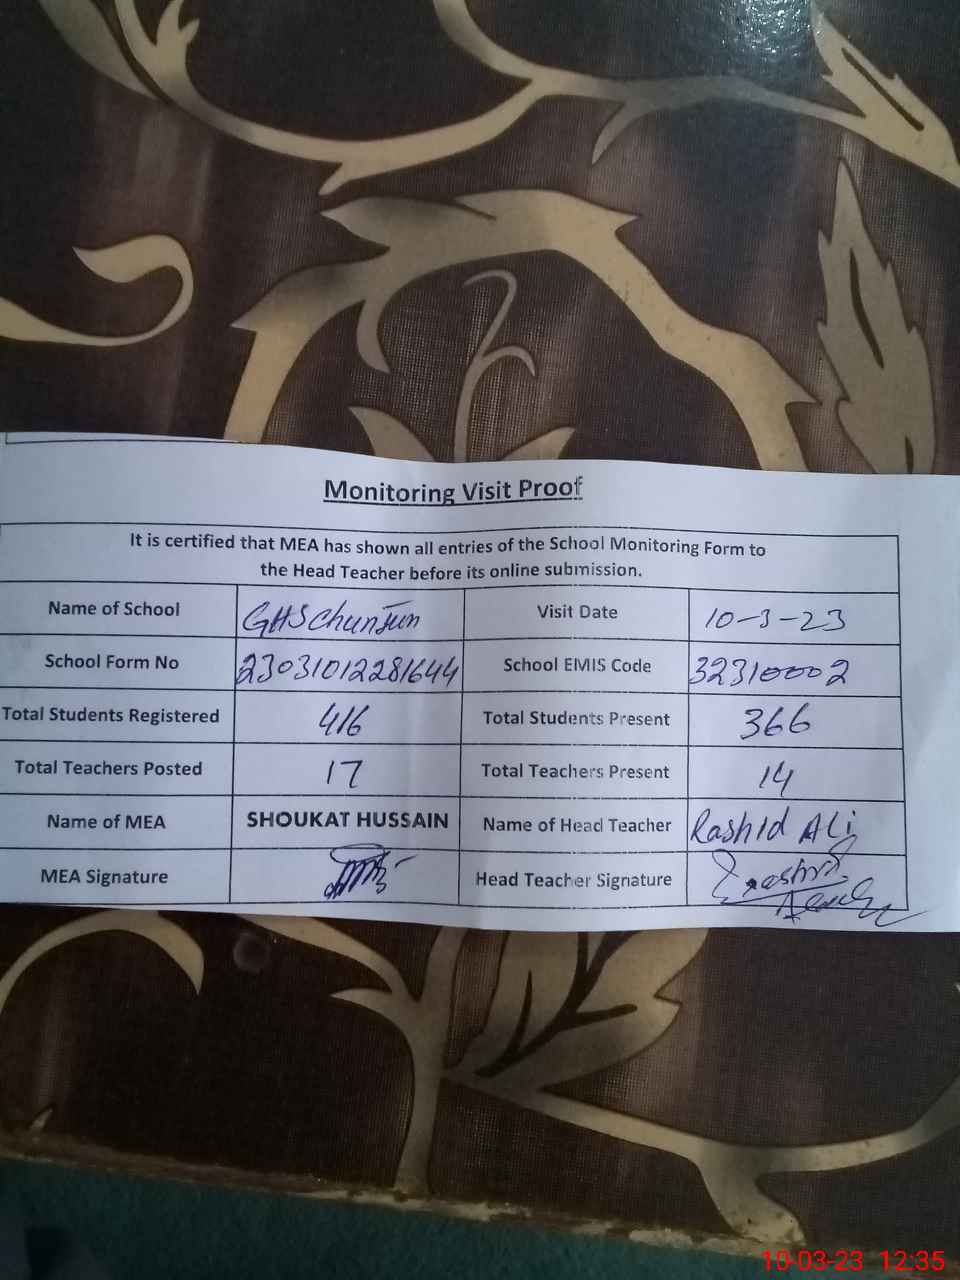 Monitoring Visit Proof
It is certified that MEA has shown all entries of the School Monitoring Form to
the Head Teacher before its online submission.
Name of School GHS Chunian Visit Date 10-3-23
School Form No 23031012281644 School EMIS Code 32310002
Total Students Registered 416 Total Students Present 366
Total Teachers Posted 17 Total Teachers Present 14
Name of MEA SHOUKAT HUSSAIN Name of Head Teacher Rashid Ali
MEA Signature Head Teacher Signature
10-03-23 12:35